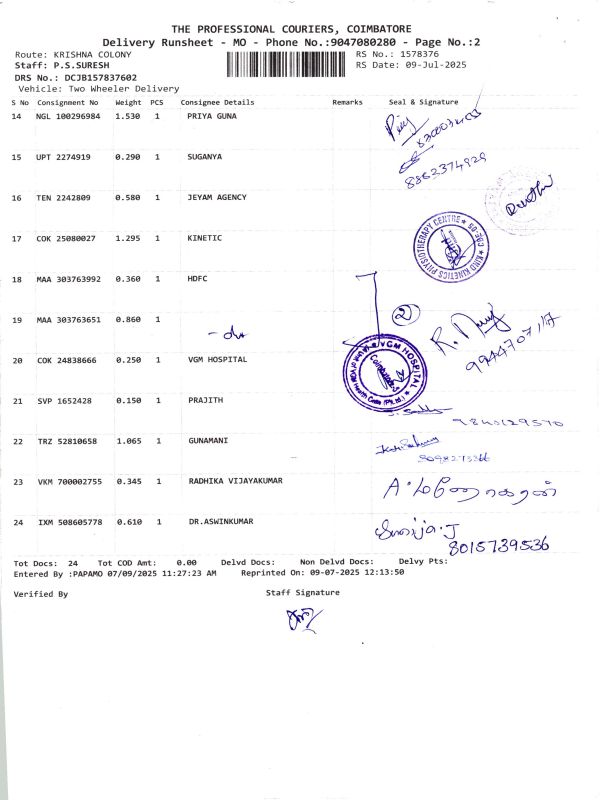 THE PROFESSIONAL COURIERS, COIMBATORE
Delivery Runsheet - MO - Phone No.:9047080280 - Page No.:2
Route: KRISHNA COLONY RS No.: 1578376
Staff: P.S.SURESH RS Date: 09-Jul-2025
DRS No.: DCJB157837602
Vehicle: Two Wheeler Delivery
S No Consignment No Weight PCS Consignee Details Remarks Seal & Signature
14 NGL 100296984 1.530 1 PRIYA GUNA
15 UPT 2274919 0.290 1 SUGANYA
8862374929
16 TEN 2242809 0.580 1 JEYAM AGENCY
17 COK 25080027 1.295 1 KINETIC
KIRD KINETICS PHYSIOTHERAPY CENTRE
18 MAA 303763992 0.360 1 HDFC
2
19 MAA 303763651 0.860 1
20 COK 24838666 0.250 1 VGM HOSPITAL
VGM HOSPITAL
Coimbatore
21 SVP 1652428 0.150 1 PRAJITH
9840129570
22 TRZ 52810658 1.065 1 GUNAMANI
9098273366
23 VKM 700002755 0.345 1 RADHIKA VIJAYAKUMAR
24 IXM 508605778 0.610 1 DR.ASWINKUMAR
8015739536
Tot Docs: 24 Tot COD Amt: 0.00 Delvd Docs: Non Delvd Docs: Delvy Pts:
Entered By :PAPAMO 07/09/2025 11:27:23 AM Reprinted On: 09-07-2025 12:13:50
Verified By Staff Signature